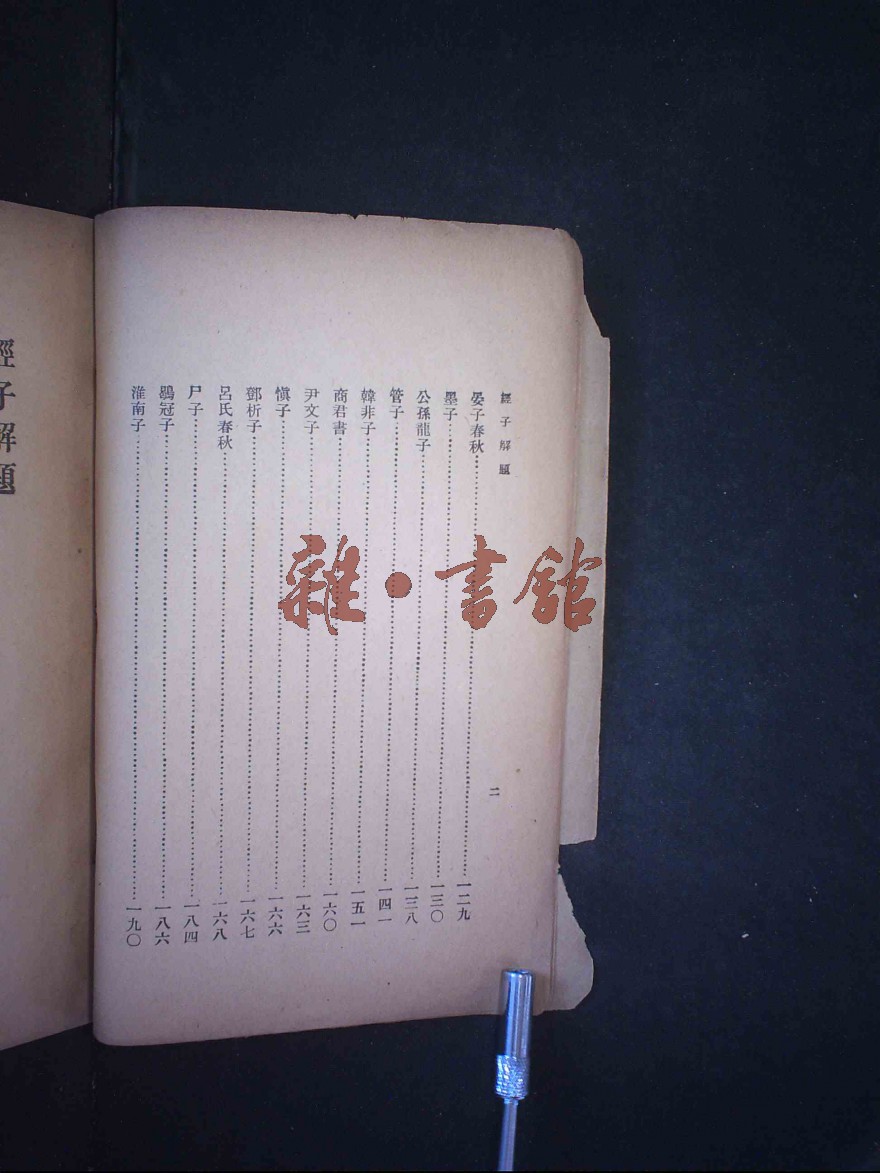 經子解題
二
晏子春秋…………一二九
墨子…………一三〇
公孫龍子…………一三八
管子…………一四一
韓非子…………一五一
商君書…………一六〇
尹文子…………一六三
愼子…………一六六
鄧析子…………一六七
呂氏春秋…………一六八
尸子…………一八四
鶡冠子…………一八六
淮南子…………一九〇
經子解題
雜·書館